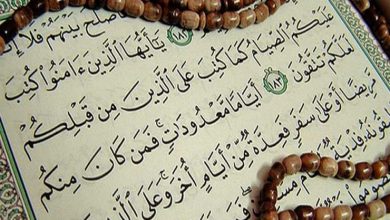 فأصلح بينهم فلا
١٨٢ يأيها الذين ءامنوا كتب
عليكم الصيام كما كتب على الذين من قبلكم
لعلكم تتقون ١٨٣ أياما معدودات فمن كان منكم
مريضا أو على سفر فعدة من أيام أخر وعلى الذين
فدية